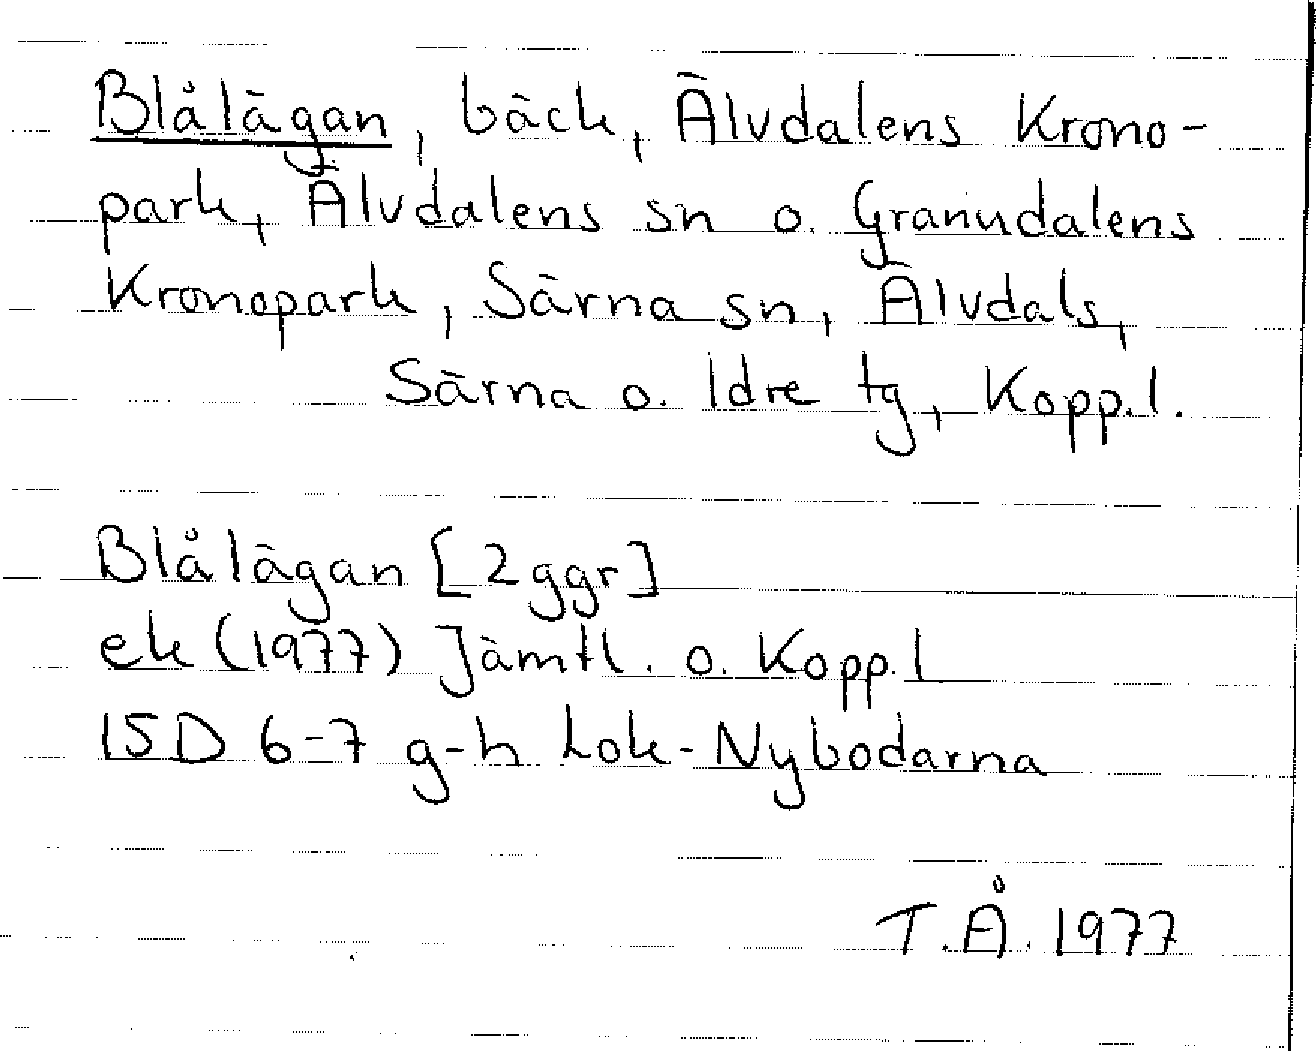 Blålägan, bäck, Älvdalens Krono-
park, Älvdalens sn o. Granudalens
Kronopark, Särna sn, Älvdals,
Särna o. Idre tg, Kopp.l.
Blålägan [2 ggr]
ek (1977) Jämtl. o. Kopp.l
15D 6-7 g-h Lok-Nybodarna
T.Å. 1977